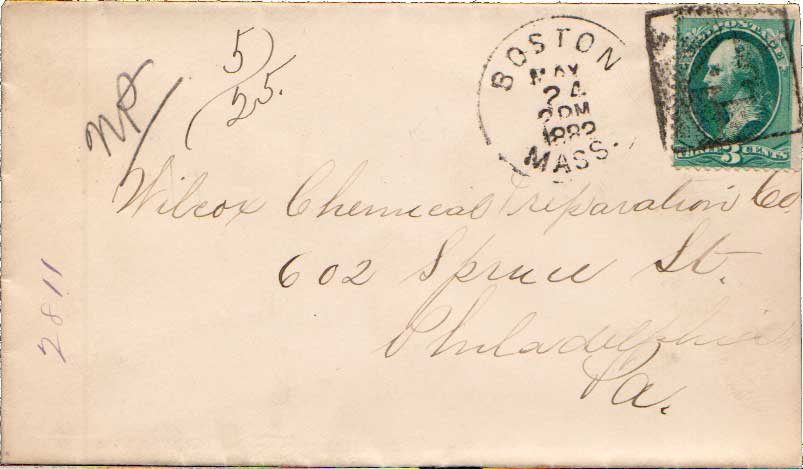 5/
25.
NP/
BOSTON
MAY
24
2 PM
1882
MASS.
POSTAGE
THREE 3 CENTS
Wilcox Chemical Preparation Co
602 Spruce St.
Philadelphia
Pa.
2811